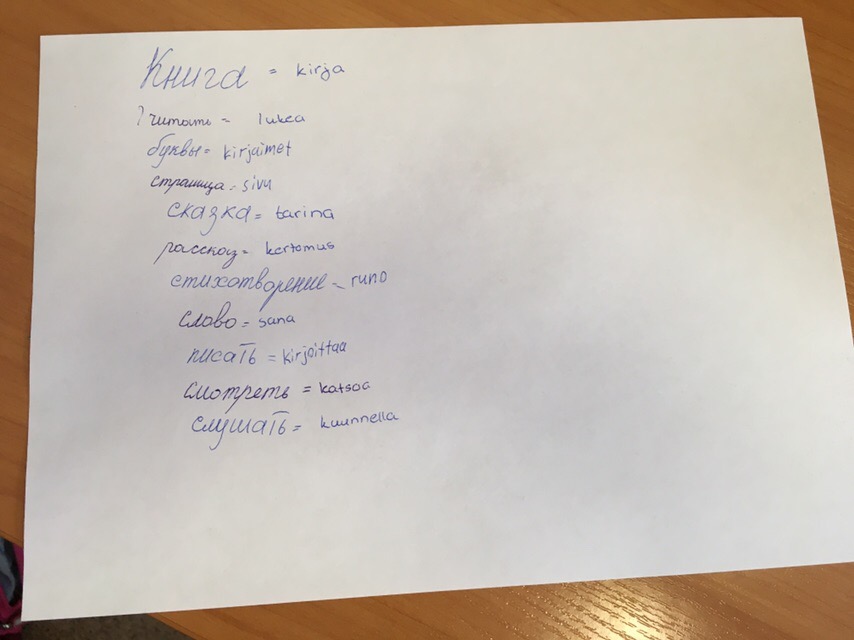 Книга = kirja
читать = lukea
буквы = kirjaimet
страница = sivu
сказка = tarina
рассказ = kertomus
стихотворение = runo
слово = sana
писать = kirjoittaa
смотреть = katsoa
слушать = kuunnella